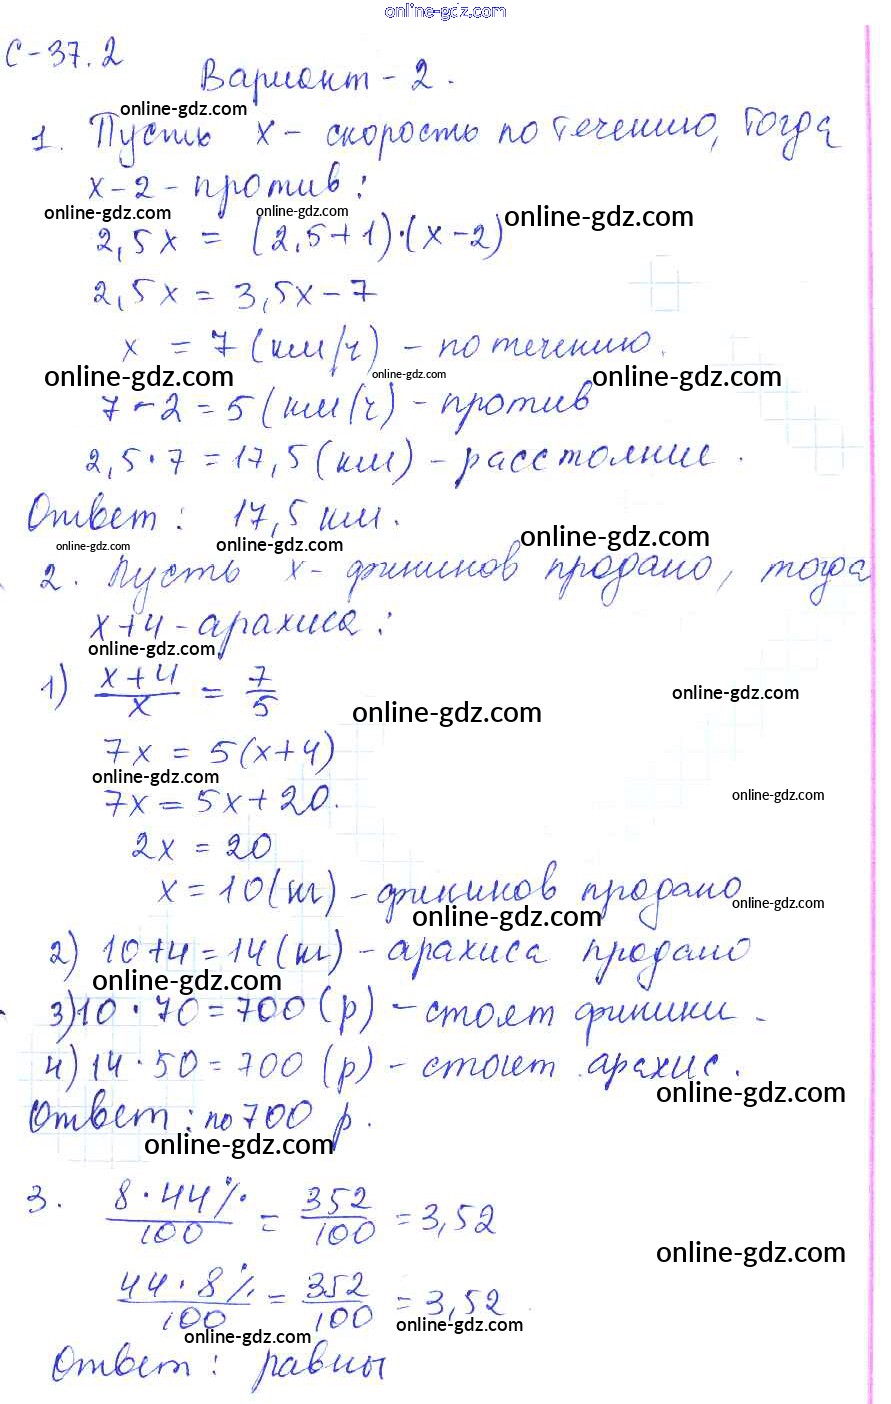 online-gdz.com
С-37.2
Вариант-2.
online-gdz.com
1. Пусть х - скорость по течению, тогда
х-2 - против:
online-gdz.com online-gdz.com online-gdz.com
2,5х = (2,5+1)·(х-2)
2,5х = 3,5х-7
х = 7 (км/ч) - по течению.
online-gdz.com online-gdz.com online-gdz.com
7-2 = 5 (км/ч) - против
2,5·7 = 17,5 (км) - расстояние.
Ответ: 17,5 км.
online-gdz.com online-gdz.com online-gdz.com
2. Пусть х - фиников продано, тогда
х+4 - арахиса:
online-gdz.com
1) (х+4)/х = 7/5
online-gdz.com online-gdz.com
7х = 5(х+4)
online-gdz.com
7х = 5х+20.
online-gdz.com
2х = 20
х = 10 (кг) - фиников продано
online-gdz.com online-gdz.com
2) 10+4 = 14 (кг) - арахиса продано
online-gdz.com
3) 10·70 = 700 (р) - стоят финики.
4) 14·50 = 700 (р) - стоит арахис.
online-gdz.com
Ответ: по 700 р.
online-gdz.com
3. 8·44%/100 = 352/100 = 3,52
online-gdz.com
44·8%/100 = 352/100 = 3,52
online-gdz.com online-gdz.com
Ответ: равны